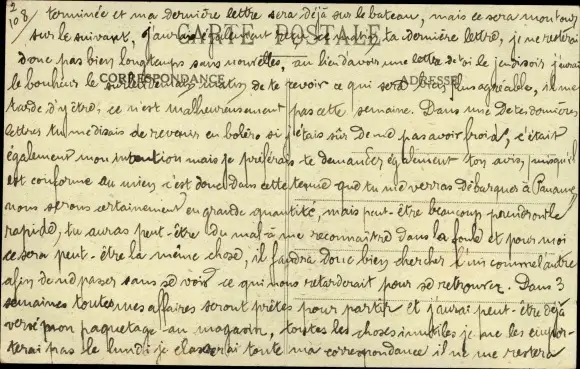 2
108
terminée et ma dernière lettre sera déjà sur le bateau, mais ce sera mon tour
CARTE POSTALE
sur le suivant, j'aurai ta dernière lettre, je ne resterai
donc pas bien longtemps sans nouvelles, au lieu d'avoir une lettre de toi le jeudi soir j'aurai
CORRESPONDANCE
ADRESSE
le bonheur le surlendemain matin de te revoir ce qui sera bien plus agréable, il me
tarde d'y être, ce n'est malheureusement pas cette semaine. Dans une de tes dernières
lettres tu me disais de revenir en boléro si j'étais sûr de ne pas avoir froid, c'était
également mon intention mais je préférais te demander également ton avis, puisqu'il
est conforme au mien c'est donc dans cette tenue que tu me verras débarquer à Paname,
nous serons certainement en grande quantité, mais peut-être beaucoup prendront le
rapide, tu auras peut-être du mal à me reconnaître dans la foule et pour moi
ce sera peut-être la même chose, il faudra donc bien chercher l'un comme l'autre
afin de ne passer sans se voir ce qui nous retarderait pour se retrouver. Dans 3
semaines toutes mes affaires seront prêtes pour partir et j'aurai peut-être déjà
versé mon paquetage au magasin, toutes les choses inutiles je ne les empor-
terai pas le lundi je classerai toute ma correspondance il ne me restera